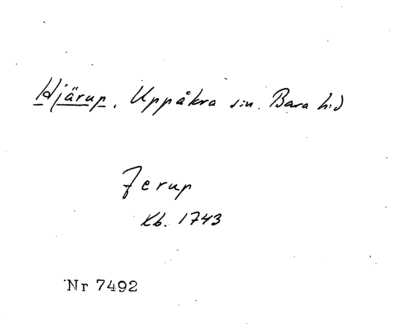 Hjärup. Uppåkra sn. Bara hd
Jerup
Kb. 1743
Nr 7492